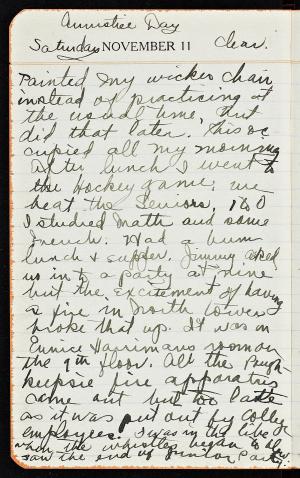 Armistice Day
Saturday NOVEMBER 11 Clear.
Painted my wicker chair
instead of practicing at
the usual time, but
did that later. This oc
cupied all my morning
After lunch I went to
the Hockey game; we
beat the Seniors, 1 to 0
I studied Math and some
French. Had a bum
lunch & supper. Jimmy asked
us in to a party at nine
but the excitement of having
a fire in North tower
broke that up. It was in
Eunice Harrimans room on
the 9th floor. All the Pough-
keepsie fire apparatus
came out but too late
as it was put out by College
employees. I was in the libe
when the whistles began to blow
saw the end of Junior Party.